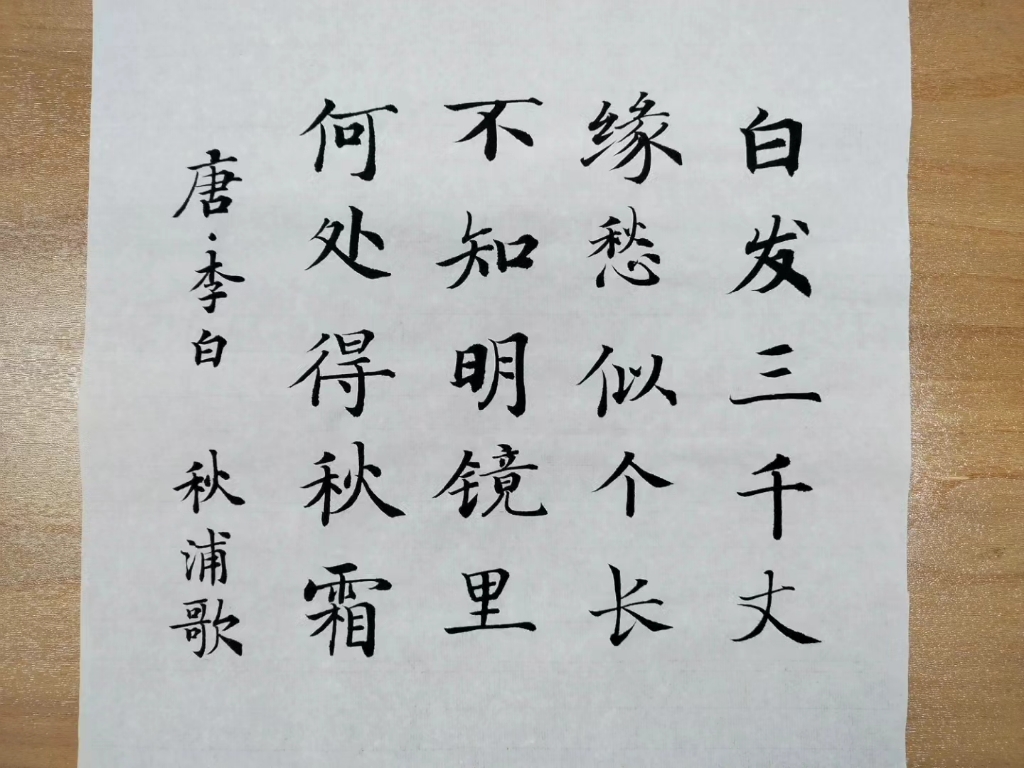 白发三千丈
缘愁似个长
不知明镜里
何处得秋霜
唐·李白 秋浦歌